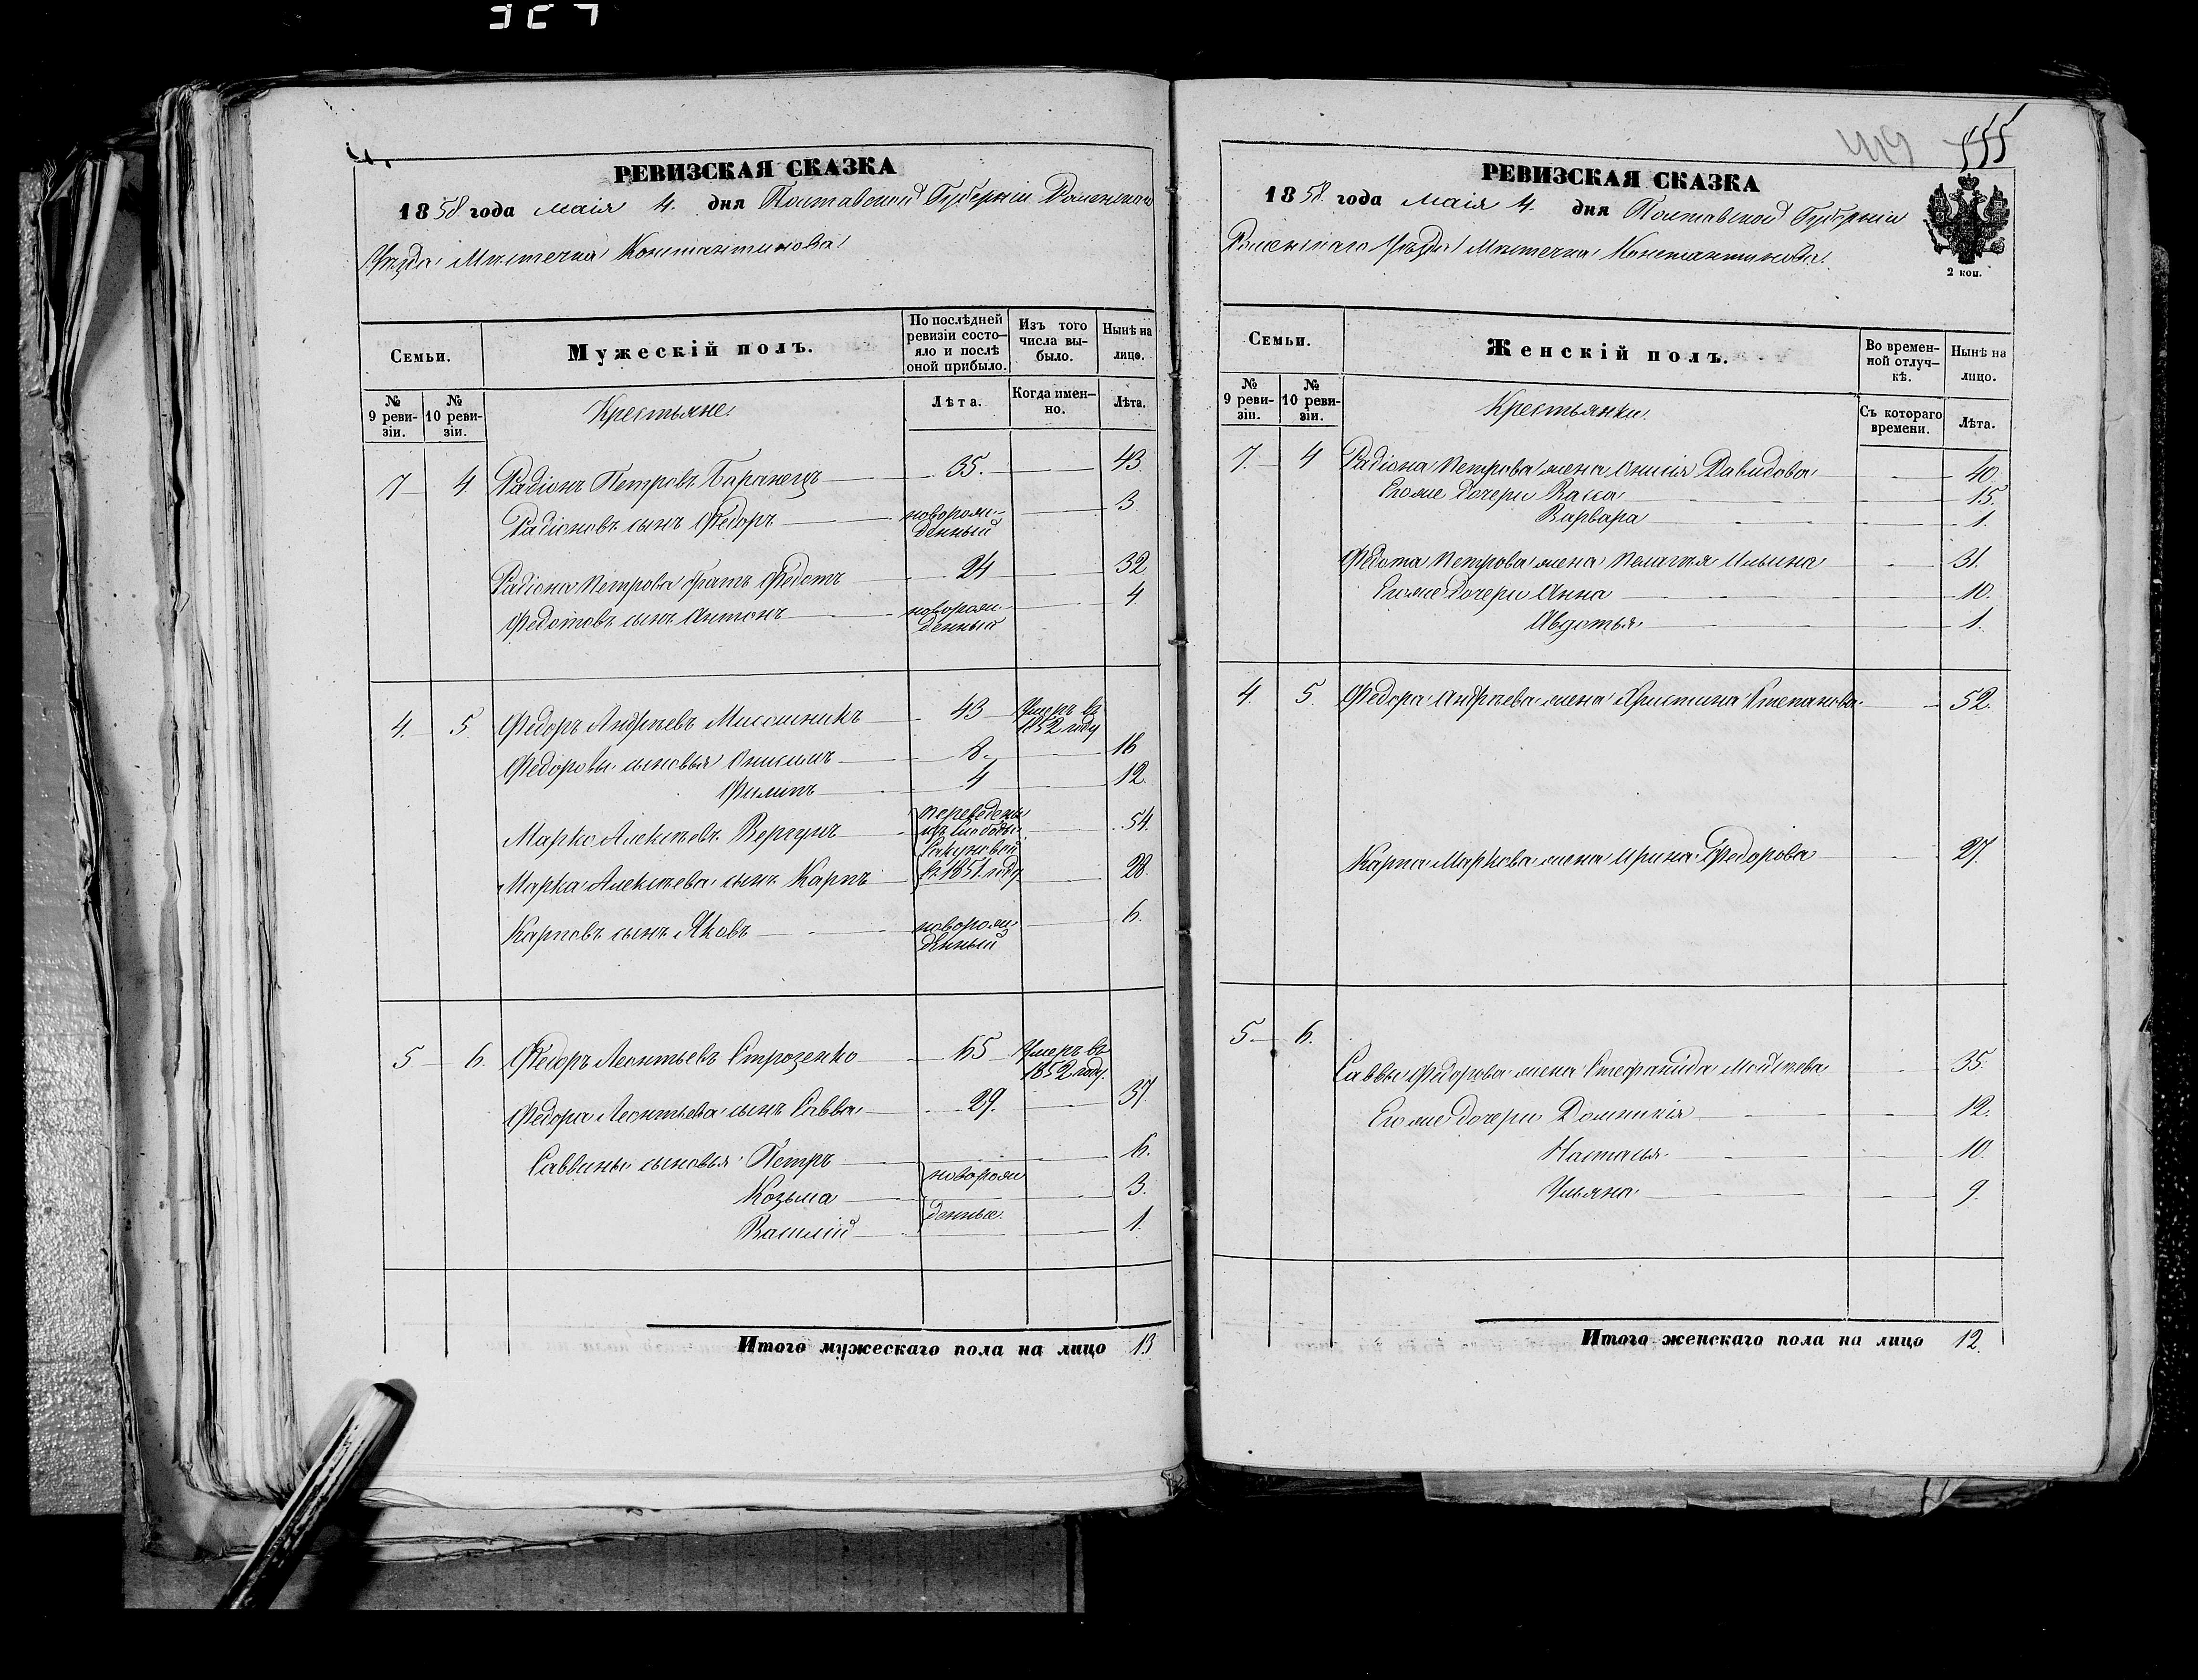 РЕВИЗСКАЯ СКАЗКА
1858 года маія 4. дня Полтавской Губерніи Роменскаго
Уѣзда Мѣстечка Константинова
Семьи.
Мужескій полъ.
По послѣдней ревизіи состо-
яло и послѣ оной прибыло.
Изъ того числа вы-
было.
Нынѣ на лице.
№ 9 реви-
зіи.
№ 10 реви-
зіи.
Крестьяне
Лѣта.
Когда имен-
но.
Лѣта.
7 4 Радіонъ Петровъ Баранецъ 35. 43.
Радіоновъ сынъ Федоръ новорож-
денный 3
Радіона Петрова братъ Федотъ 24 32
Федотовъ сынъ Антонъ новорож-
денный 4.
4. 5. Федоръ Андреевъ Мисошникъ 43 Умеръ въ
1852 году
Федоровы сыновья Онисимъ 8. 16
Филипъ 4 12.
Марко Алексѣевъ Вергунъ переведены
изъ слободы 54.
Марка Алексѣева сынъ Карпъ въ 1851 году 28.
Карповъ сынъ Яковъ новорож-
денный 6.
5 6. Федоръ Леонтьевъ Строценко 65 Умеръ въ
1852 году.
Федора Леонтьева сынъ Савва 29. 37
Саввины сыновья Петръ новорож 6.
Козьма 3.
Василій денные. 1.
Итого мужескаго пола на лицо 13.
119 555
РЕВИЗСКАЯ СКАЗКА
1858 года маія 4. дня Полтавской Губерніи
Роменскаго Уѣзда Мѣстечка Константинова
2 коп.
Семьи.
Женскій полъ.
Во времен-
ной отлуч-
кѣ.
Нынѣ на лицо.
№ 9 реви-
зіи.
№ 10 реви-
зіи.
Крестьянки
Съ котораго времени.
Лѣта.
7. 4 Радіона Петрова жена Онисія Давидова 40.
Его же дочери Васса 15.
Варвара 1.
Федота Петрова жена Пелагея Ильина 31.
Его же дочери Анна 10.
Авдотья 1.
4. 5. Федора Андреева жена Христина Степанова 52.
Карпа Маркова жена Ирина Федорова 27.
5 6.
Саввы Федорова жена Стефанида Мойсѣева 35.
Его же дочери Домникія 12.
Настасья 10.
Ульяна 9.
Итого женскаго пола на лицо 12.